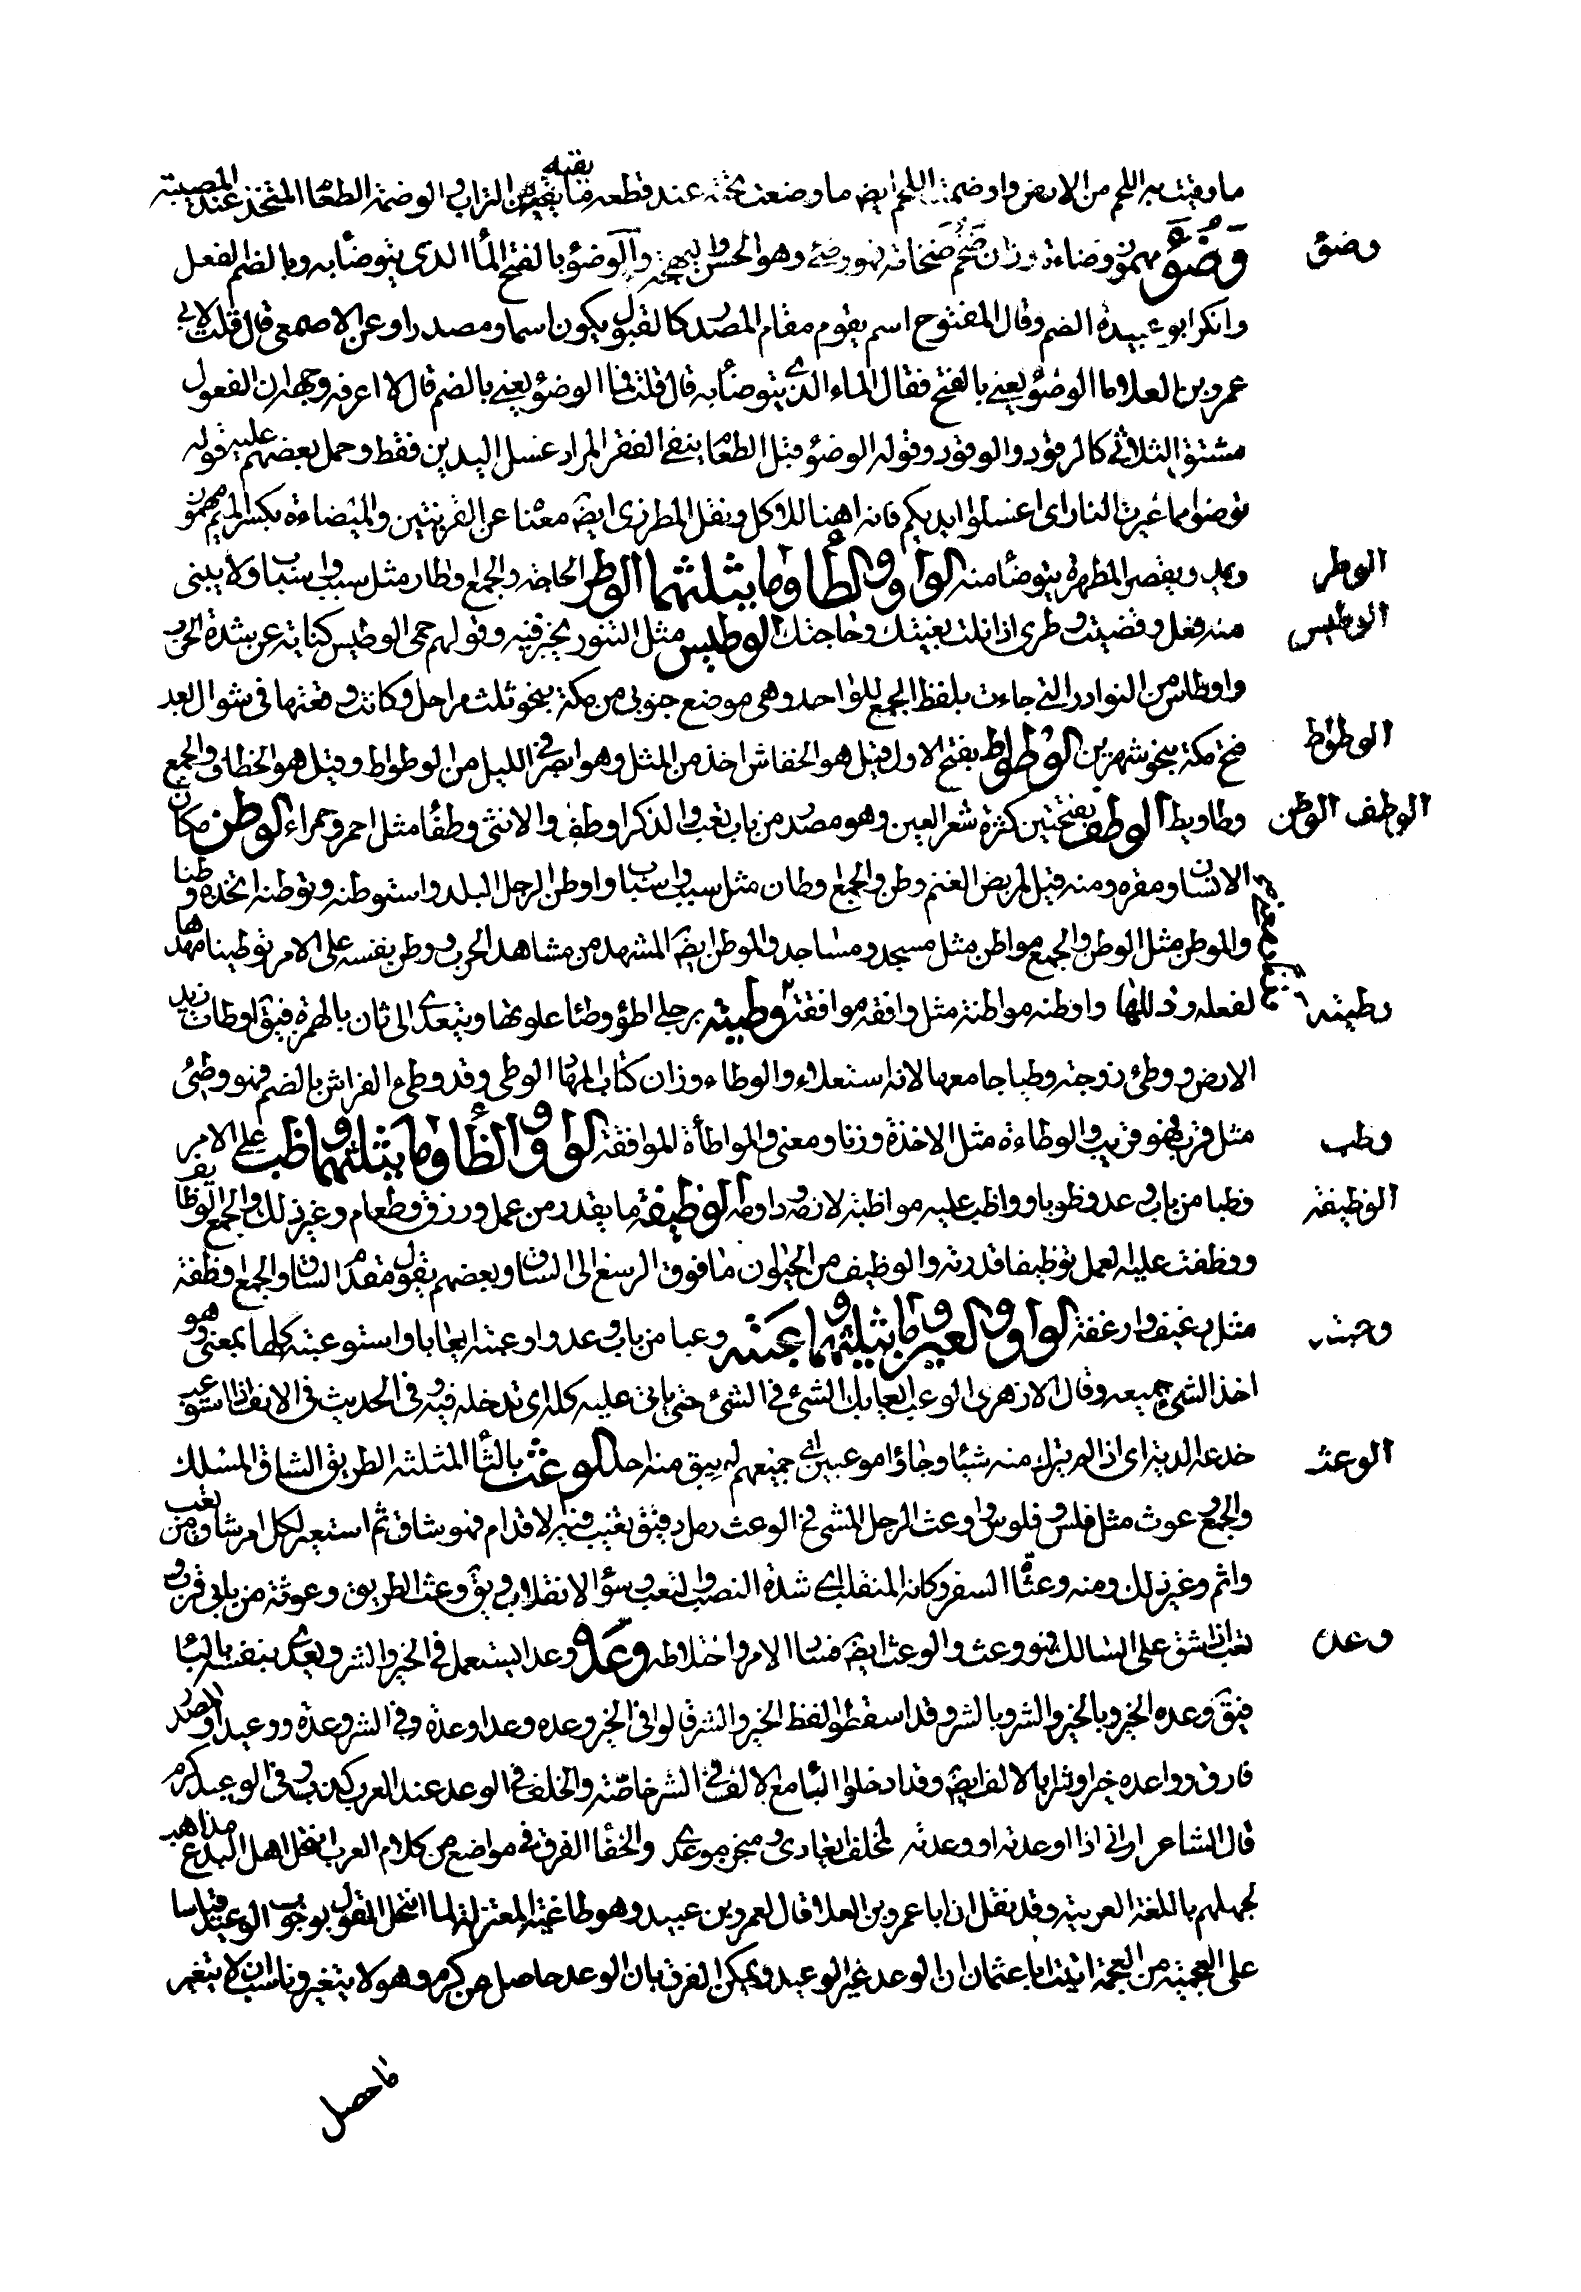 ما وقيت به اللحم من الارض واوضمت اللحم ايضا ما وضعت تحته عند قطعه ما يقيه من التراب والوضمة الطعام المتخذ عند المصيبة
وضؤ
وَضُؤَ مهموز وضاءة وزان ضخم ضخامة فهو وضئ وهو الحسن والبهجة والوضوء بالفتح الماء الذى يتوضأ به وبالضم الفعل
وانكر ابو عبيدة الضم وقال المفتوح اسم يقوم مقام المصدر كالقبول يكون اسما ومصدرا وعن الاصمعى قال قلت لابى
عمرو بن العلاء ما الوضوء يعنى بالفتح فقال الماء الذى يتوضأ به قال قلت فما الوضوء يعنى بالضم قال لا اعرفه وجها ان الفعول
مشتق الثلاثى كالرقود والوقود وقوله الوضوء قبل الطعام ينفى الفقر المراد غسل اليدين فقط وحمل بعضهم عليه قوله
توضؤا مما غيرت النار اى اغسلوا ايديكم فانه اهنا للاكل ونقل المطرزى ايضا معنا عن القرينتين والميضاءة بكسر الميم مهموز
الوطر
ويمد ويقصر المطهرة يتوضأ منه الواو والطاء وما يثلثهما الوطر الحاجة والجمع اوطار مثل سبب واسباب ولا يبنى
الوطيس
منه فعل وقضيت وطرى اذا نلت بغيتك وحاجتك الوطيس مثل التنور يختبز فيه وقولهم حمى الوطيس كناية عن شدة الحرب
واوطاس من النوادر التى جاءت بلفظ الجمع للواحد وهى موضع جنوبى من مكة بنحو ثلث مراحل وكانت وقعتها فى شوال بعد
الوطواط
فتح مكة بنحو شهر من الوطواط بفتح الاول قيل هو الخفاش اخذ من المثل وهو ابصر فى الليل من الوطواط وقيل هو الخطاف والجمع
الوطف الوطن
وطاويط الوطف بفتحتين كثرة شعر العين وهو مصدر من باب تعب والذكر اوطف والانثى وطفا مثل احمر وحمراء الوطن مكان
الانسان ومقره ومنه قيل لمربض الغنم وطن والجمع اوطان مثل سبب واسباب واوطن الرجل البلد واستوطنه وتوطنه اتخذه وطنا
والموطن مثل الوطن والجمع مواطن مثل مسجد ومساجد والموطن ايضا المشهد من مشاهد الحرب ووطن نفسه على الامر توطينا مهدها
وطيته
لفعله وذللها واوطنه مواطنة مثل وافقه موافقة وطيته برجلى اطؤه وطئا علوتها ويتعدى الى ثان بالهمزة فيق اوطات زيدا
الارض ووطئ زوجته وطيا جامعها لانه استعلاء والوطاء وزان كتاب المهاد الوطى وقد وطء الفراش بالضم فهو وطئ
وظب
مثل قرب فهو قريب والوطاءة مثل الاخذة وزنا ومعنى والمواطأة الموافقة الواو والظاء وما يثلثهما وظب على الامر
الوظيفة
وظبا من باب وعد وظوبا وواظب عليه مواظبة لازمه وداومه الوظيفة ما يقدر من عمل ورزق وطعام وغير ذلك والجمع الوظايف
ووظفت عليه العمل توظيفا قدرته والوظيف من الحيوان ما فوق الرسغ الى الساق وبعضهم يقول مقدم الساق والجمع اوظفة
وعبته
مثل رغيف وارغفة الواو والعين وما يثلثهما وعبته وعبا من باب وعد واوعبته ايعابا واستوعبته كلها بمعنى وهو
اخذ الشئ جميعه وقال الازهرى الوعب ايعابك الشئ فى الشئ حتى ياتى عليه كله اى تدخله فيه وفى الحديث فى الانف اذا استوعب
الوعث
جدعه الدية اى اذا لم يترك منه شيئا وجاؤا موعبين اى جميعهم لم يبق منه احد الوعث بالثاء المثلثة الطريق الشاق المسلك
والجمع وعوث مثل فلس وفلوس واوعث الرجل المشى فى الوعث رمل رقيق تغيب فيه الاقدام فهو شاق ثم استعير لكل امر شاق من تعب
واثم وغير ذلك ومنه وعثاء السفر وكانه المنقلب اى شدة النصب والتعب وسوء الانقلاب ويق وعث الطريق وعوثة من بابى قرب و
وعد
تعب اذا شق على السالك فهو وعث والوعث ايضا فساد الامر واختلاطه وعده وعدا يستعمل فى الخير والشر ويعدى بنفسه وبالباء
فيق وعده الخير وبالخير والشر وبالشر وقد اسقطوا لفظ الخير والشر قالوا فى الخير وعده وعدا وعدة وفى الشر وعده ووعيدا والمصدر
فارق وواعده خيرا وشرا بالالف ايضا وقد ادخلوا الباء مع الالف فى الشر خاصة والخلف فى الوعد عند العرب كذب وفى الوعيد كرم
قال الشاعر وانى اذا اوعدته او وعدته لمخلف ايعادى ومنجز موعدى والخفا الفرق فى مواضع من كلام العرب انتحل اهل البدع مذاهب
لجهلهم باللغة العربية وقد نقل ان ابا عمرو بن العلاء قال لعمرو بن عبيد وهو طاغية المعتزلة لما انتحل القول بوجوب الوعيد قياسا
على العجمية من العجمة اتيت ابا عثمان ان الوعد غير الوعيد ويمكن الفرق بان الوعد حاصل عن كرم وهو لا يتغير وناسب ان لا يتغير
ما حصل